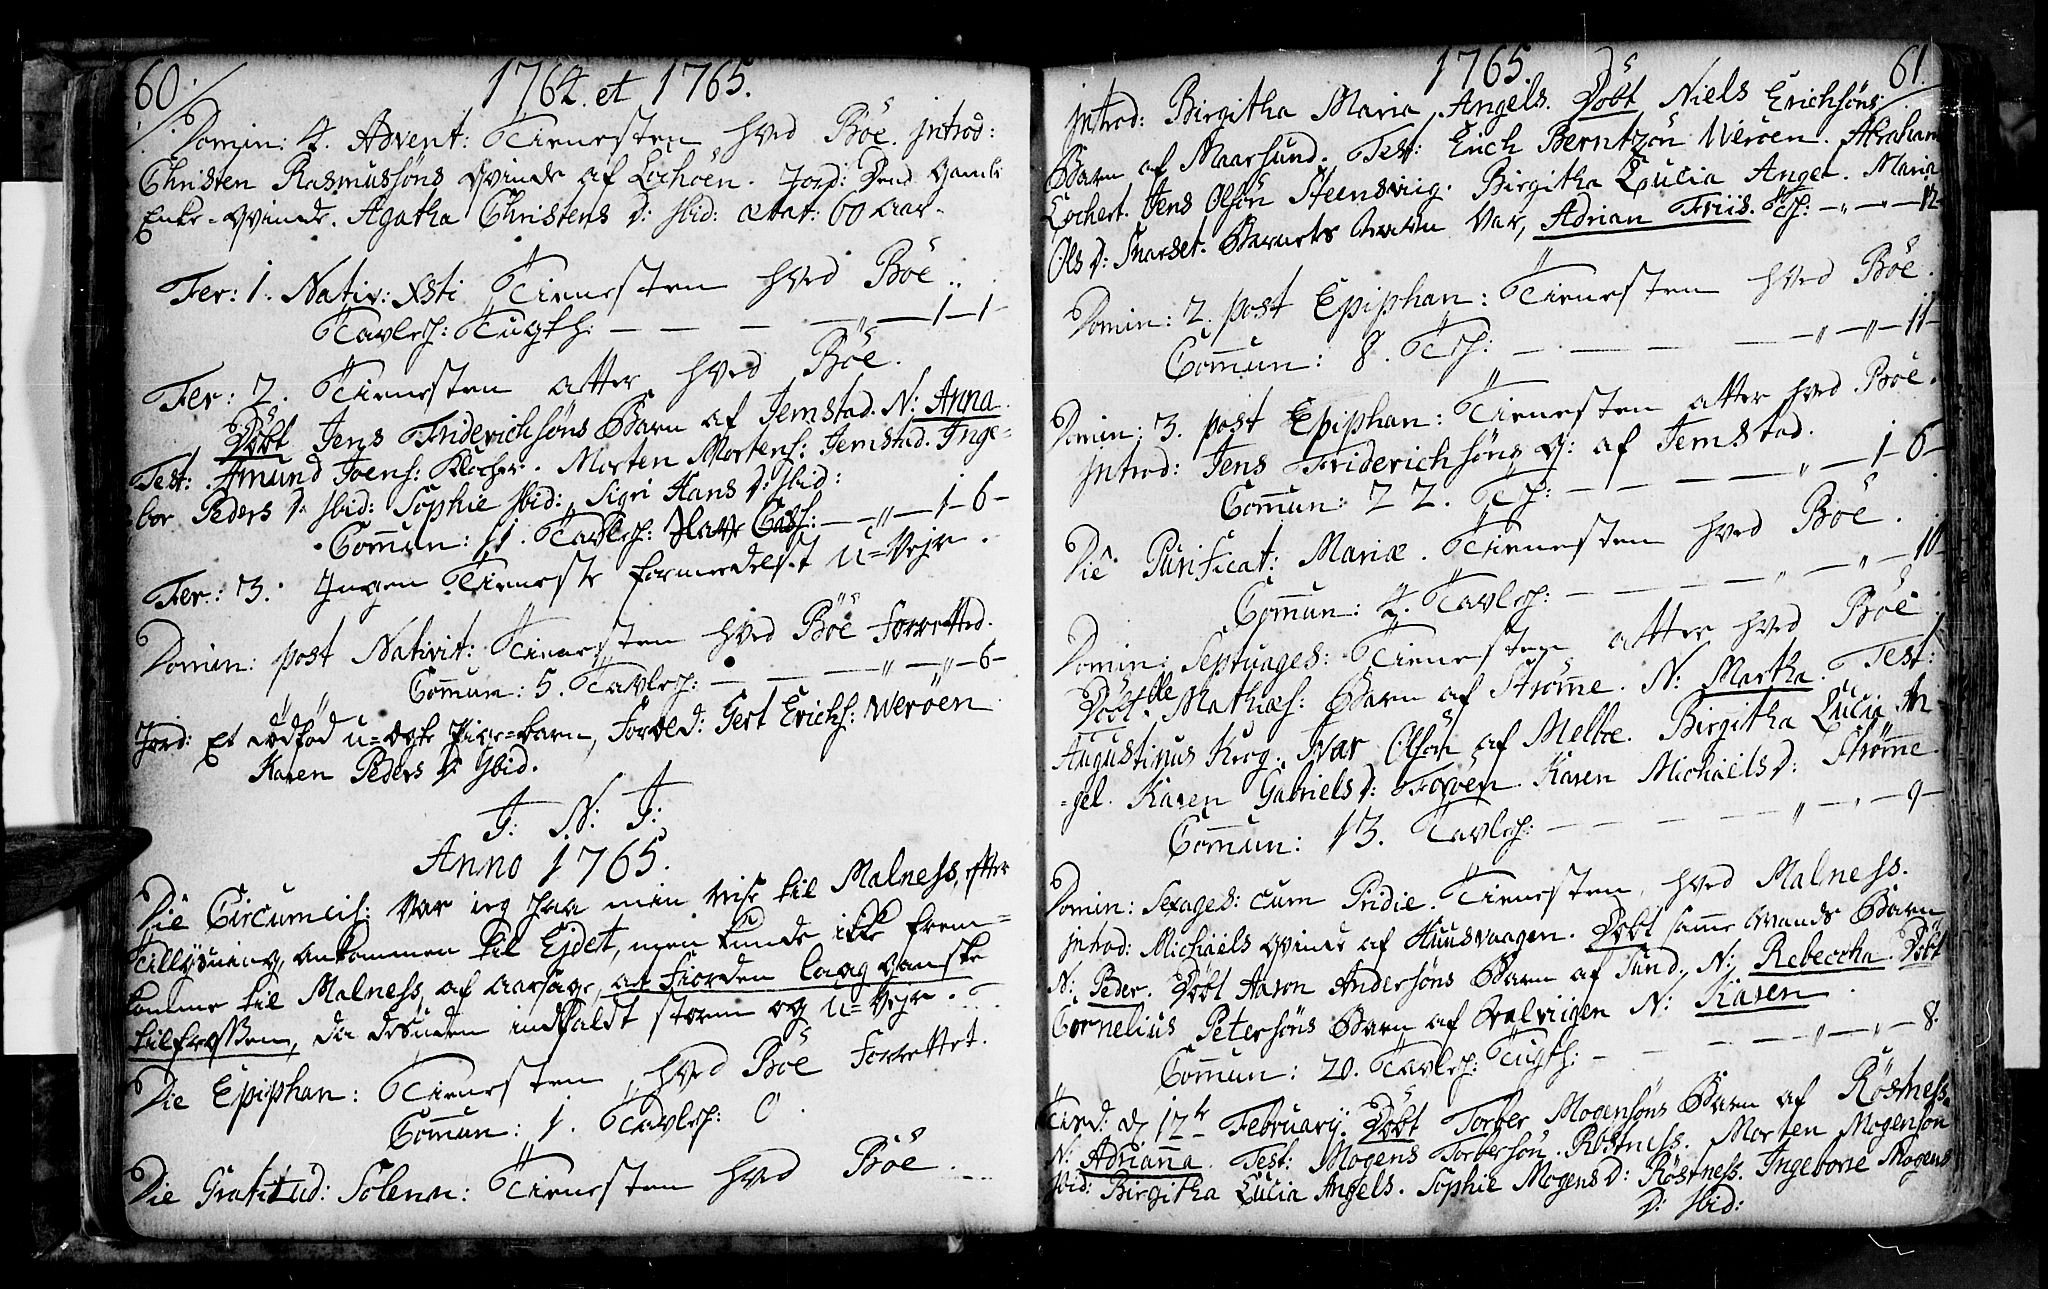 60.
1764. et 1765.
Domin: 4. Advent: Tienesten hved Böe. Introd:
Christen Rasmussöns qvinde af Lochöen. Jord: Gamle
Enke-qvinde. Agatha Christens D: ibid: ætat: 60 Aar.
Fer: 1. Nativ: Xsti Tienesten hved Böe.
Tavlep: Tugth: — — — — 1—1—
Fer: 2. Tienesten atter hved Böe.
Döbt Jens Friderichsöns Barn af Jemstad. N: Anna.
Test: Amund Joens: Klocher. Morten Mortens: Jemstad. Inge-
bor Peders D: ibid: Sophie ibid: Sigri Hans D: ibid:
Commun: 11. Tavlep: — „ — 1—6—
Fer: 3. Ingen Tieneste formedelst U=Vejr.
Domin: post Nativit: Tienesten hved Böe Forretted.
Commun: 5. Tavlep: — — — „ — „ — 6—
Jord: Et dödföd u=ægte Pige=barn, Foræld: Gert Erichs: Weröen
Karen Peders D: Ibid.
J: N: J:
Anno 1765.
Die Circumcis: Var ieg paa min reise til Malness, efter
Tillysning, ankommen til Ejdet, men kunde ikke frem-
komme til Malness, af aarsage, at fiorden laag ganske
tilfrossen, da desuden indfaldt storm og U=Vejr.
Die Epiphan: Tienesten hved Böe Forrettet.
Commun: 1. Tavlep: 0.
Die Gratitud: Solenn: Tienesten hved Böe.
1765.
61.
Introd: Birgitha Maria Angels. Döbt Niels Erichsöns
Barn af Maarsund. Test: Erich Berntzön Weröen. Abraham
Lochert. Jens Olsön Steensvig. Birgitha Lucia Angel. Maria
Ols D: Snarset. Barnets navn var, Adrian Friis. Tp: — „ — 12
Domin: 2. post Epiphan: Tienesten hved Böe.
Commun: 8. Tp: — — — „ — „ — 11—
Domin: 3. post Epiphan: Tienesten atter hved Böe.
Introd: Jens Friderichsöns Q: af Jemstad.
Commun: 22. Tp: — — — „ — 1—6—
Die Purificat: Mariæ. Tienesten hved Böe.
Commun: 4. Tavlep: — — — „ — „ — 10—
Domin: Septuages: Tienesten atter hved Böe.
Döbt Mathias: Barn af Strömme. N: Martha. Test:
Augustinus Krog. Ivar Olsön af Melbœ. Birgitha Lucia An-
gel. Karen Gabriels D: Foröen. Karen Michaëls D: Strömme
Commun: 13. Tavlep: — — — „ — „ — 9—
Domin: Sexages: cum Pridie. Tienesten hved Malness.
Introd: Michaëls qvinde af Huusvaagen. Döbt samme Mands Barn
N: Peder. Döbt Aaron Andersöns Barn af Sund. N: Rebeccha. Döbt
Cornelius Petersöns Barn af N: Karen
Commun: 20. Tavlep: Tugth: — — — „ — „ — 8.
Tirsd: d 12te February. Döbt Torber Mogensöns Barn af Röstness.
N: Adrianna. Test: Mogens Torbersön Röstness. Morten Mogensön
ibid: Birgitha Lucia Angels. Sophie Mogens D: Röstness. Ingebore Mogens
D: Ibid: